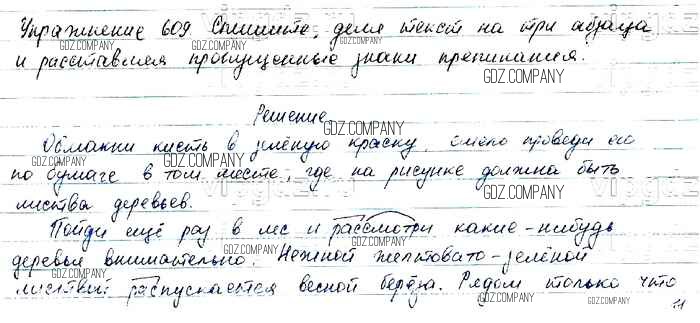 Упражнение 609 Спишите, деля текст на три абзаца
и расставляя пропущенные знаки препинания.
Решение
Обмакни кисть в зелёную краску, смело проведи ею
по бумаге в том месте, где на рисунке должна быть
листва деревьев.
Пойди ещё раз в лес и рассмотри какие-нибудь
деревья внимательно. Нежной желтовато-зелёной
листвой распускается весной берёза. Рядом только что
GDZ.COMPANY